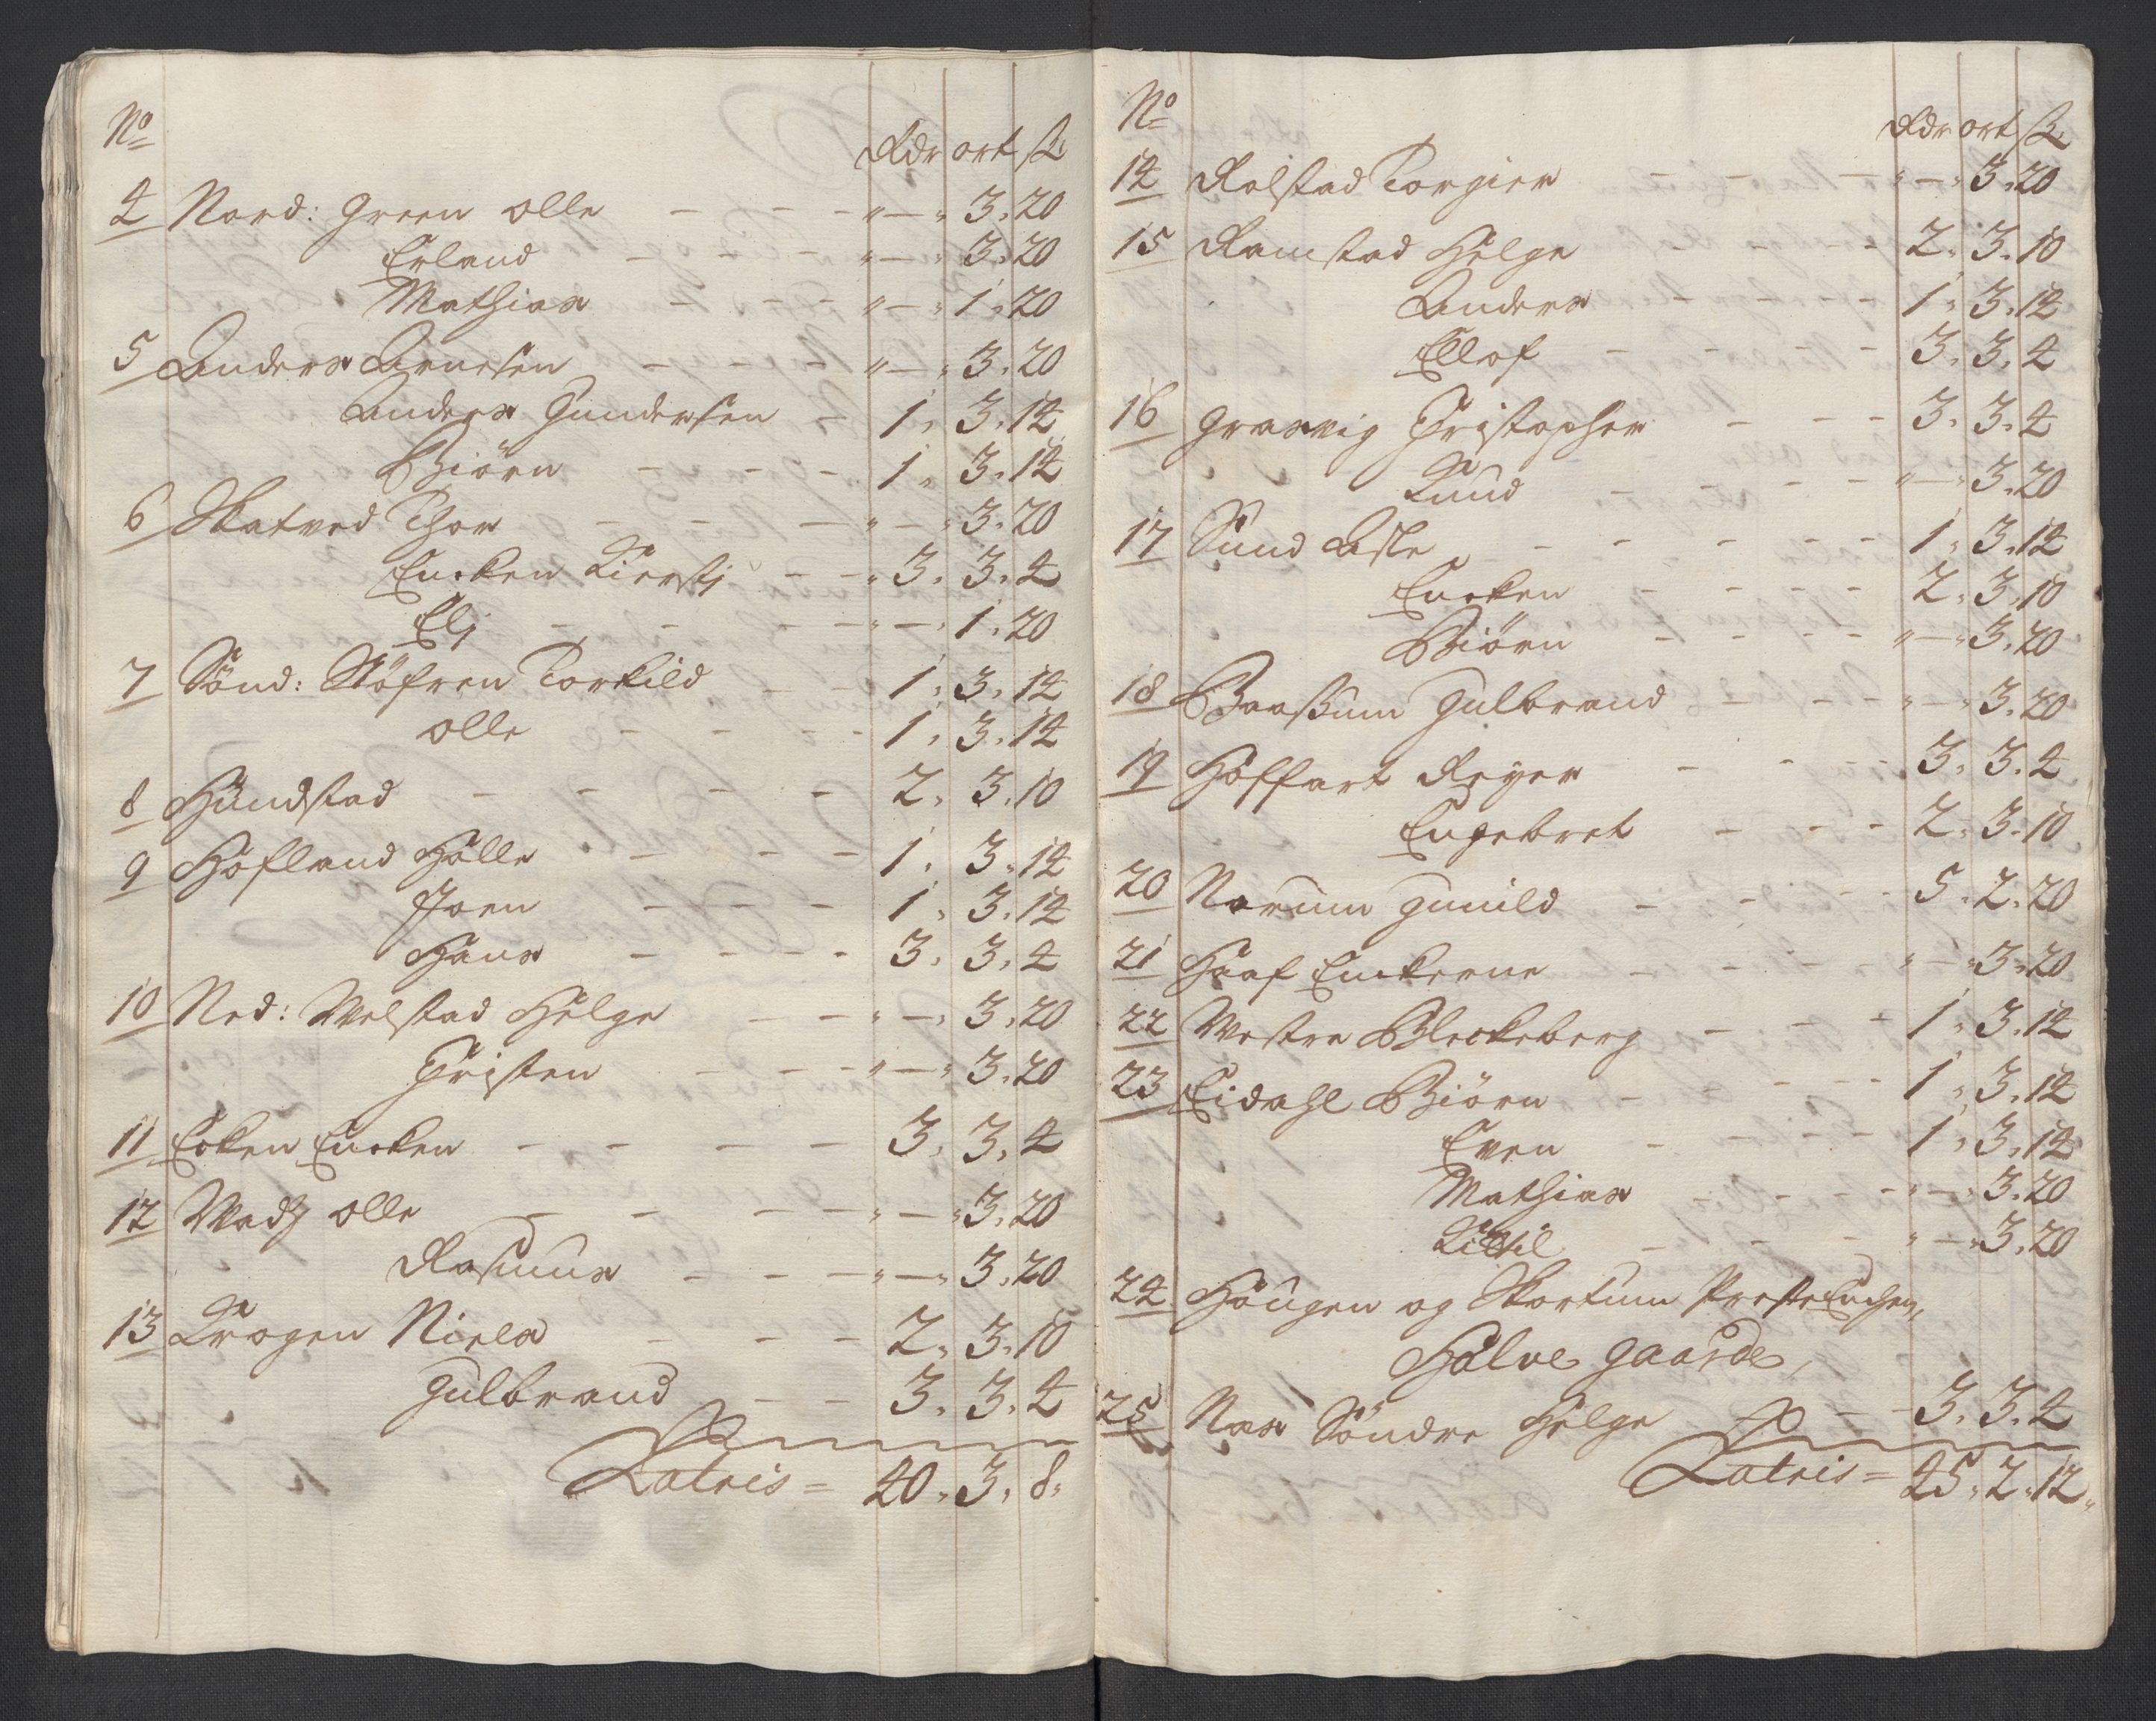 No
Rdr ort ß.
4 Nord: Green Olle - - - " - " 3. 20
Erland - - - " - " 3. 20
Mathias - - - " - " 1. 20
5 Anders Arnesen - - - " - " 3. 20
Anders Gundersen - 1. 3. 12
Biörn - - - 1. 3. 12
6 Skatved Thor - - - " - " 3. 20
Encken Kiersti - - 3. 3. 4
Eli - - - " - " 1. 20
7 Sönd: Stöfren Torkild - - 1. 3. 12
Olle - - - - 1. 3. 12
8 Hundstad - - - - 2. 3. 10
9 Hofland Halle - - - 1. 3. 12
Joen - - - 1. 3. 12
Hans - - - - 3. 3. 4
10 Ned: Velstad Helge - - " - " 3. 20
Christen - - - " - " 3. 20
11 Ecken Encken - - - - 3. 3. 4
12 Olle - - - " - " 3. 20
Rasmus - - - " - " 3. 20
13 Krogen Niels - - - 2. 3. 10
Gulbrand - - 3. 3. 4
Latris = 40. 3. 8.
No
Rdr ort ß.
14 Rolstad Torgier - - - - " - " 3. 20
15 Ramstad Helge - - - 2. 3. 10
Anders - - - - 1. 3. 12
Ellof - - - - 3. 3. 4
16 Grasvig Christopher - - - 3. 3. 4
Knud - - - - " - " 3. 20
17 Sund Asle - - - - - 1. 3. 12
Encken - - - - 2. 3. 10
Biörn - - - - " - " 3. 20
18 Baassum Gulbrand - - - " - " 3. 20
19 Hoffart Reyer - - - 3. 3. 4
Engebret - - - 2. 3. 10
20 Norum Gunild - - - 5. 2. 20
21 Haaf Enckerne - - - " - " 3. 20
22 Vestre Bleckeberg - - - 1. 3. 12
23 Eidahl Biörn - - - 1. 3. 12
Even - - - - 1. 3. 12
Mathias - - - - " - " 3. 20
Kittil - - - " - " 3. 20
24 Hougen og Skortum
Halve gaarde,
25 Næs Söndre Helge - - 3. 3. 4
Latris = 45. 2. 12.